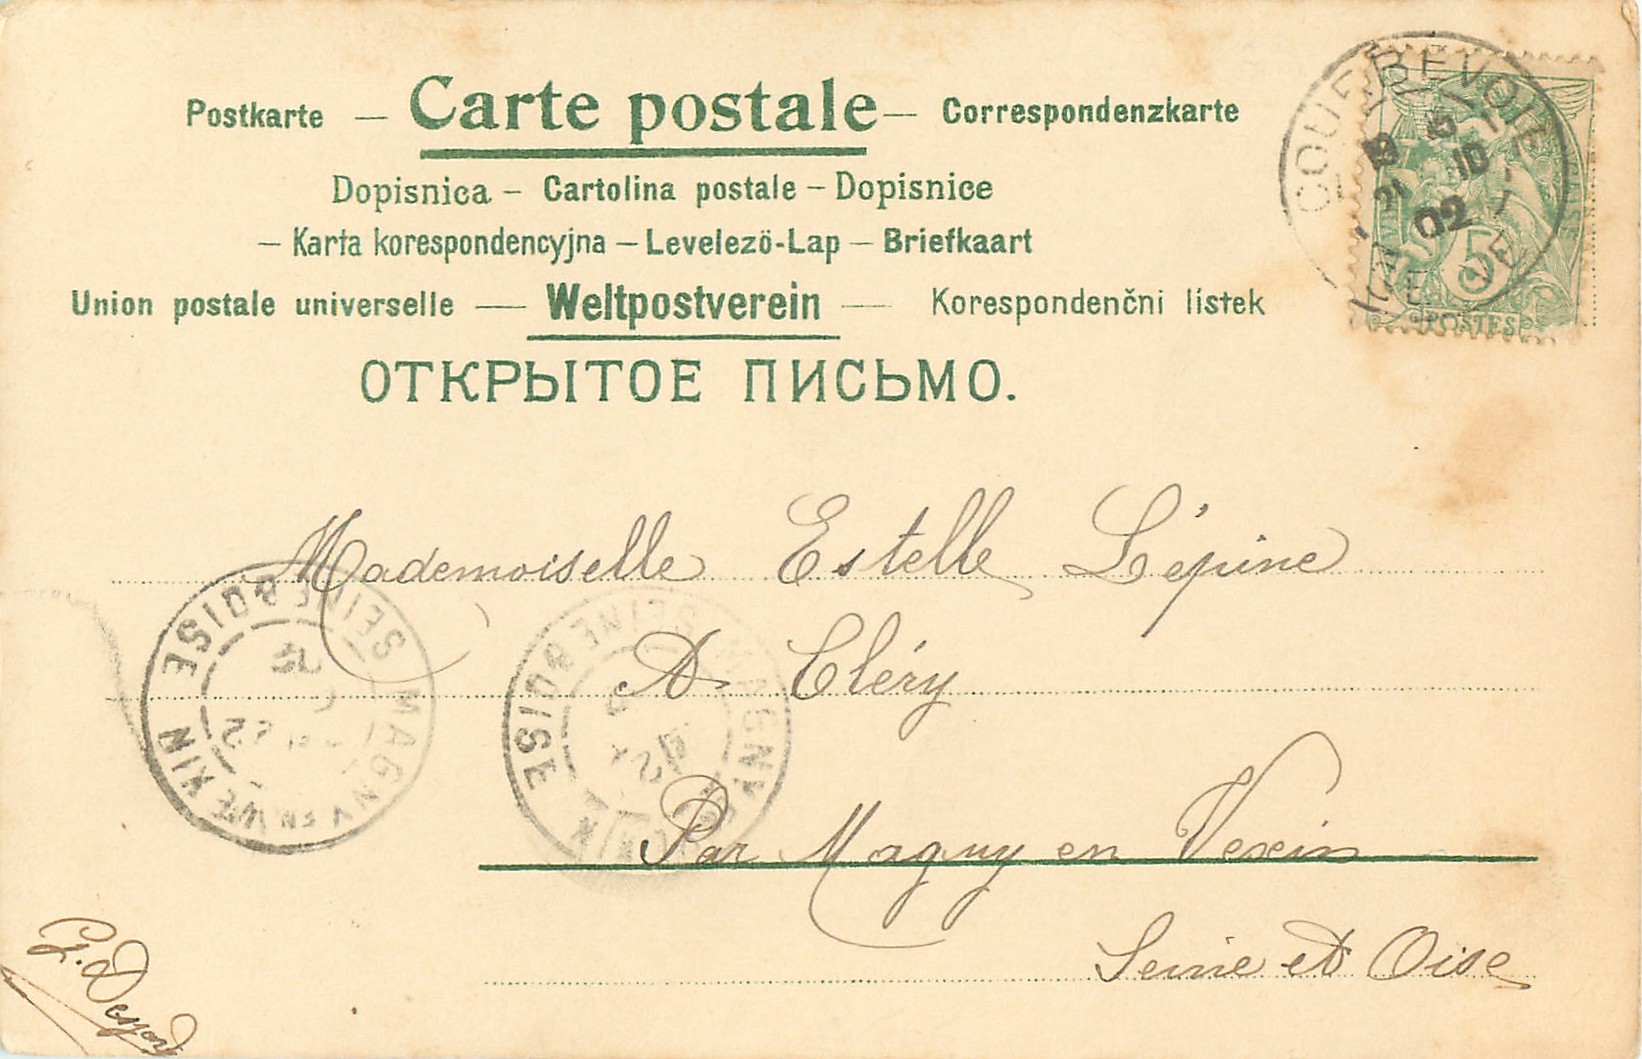 Postkarte — Carte postale — Correspondenzkarte
Dopisnica – Cartolina postale – Dopisnice
– Karta korespondencyjna – Levelezö-Lap – Briefkaart
Union postale universelle — Weltpostverein — Korespondenčni lístek
ОТКРЫТОЕ ПИСЬМО.
COURBEVOIE
10
02
5
POSTES
Mademoiselle Estelle Lépine
A Cléry
Par Magny en Vexin
Seine et Oise
MAGNY EN VEXIN
SEINE & OISE
22
MAGNY
VEXIN
SEINE & OISE
02
G.